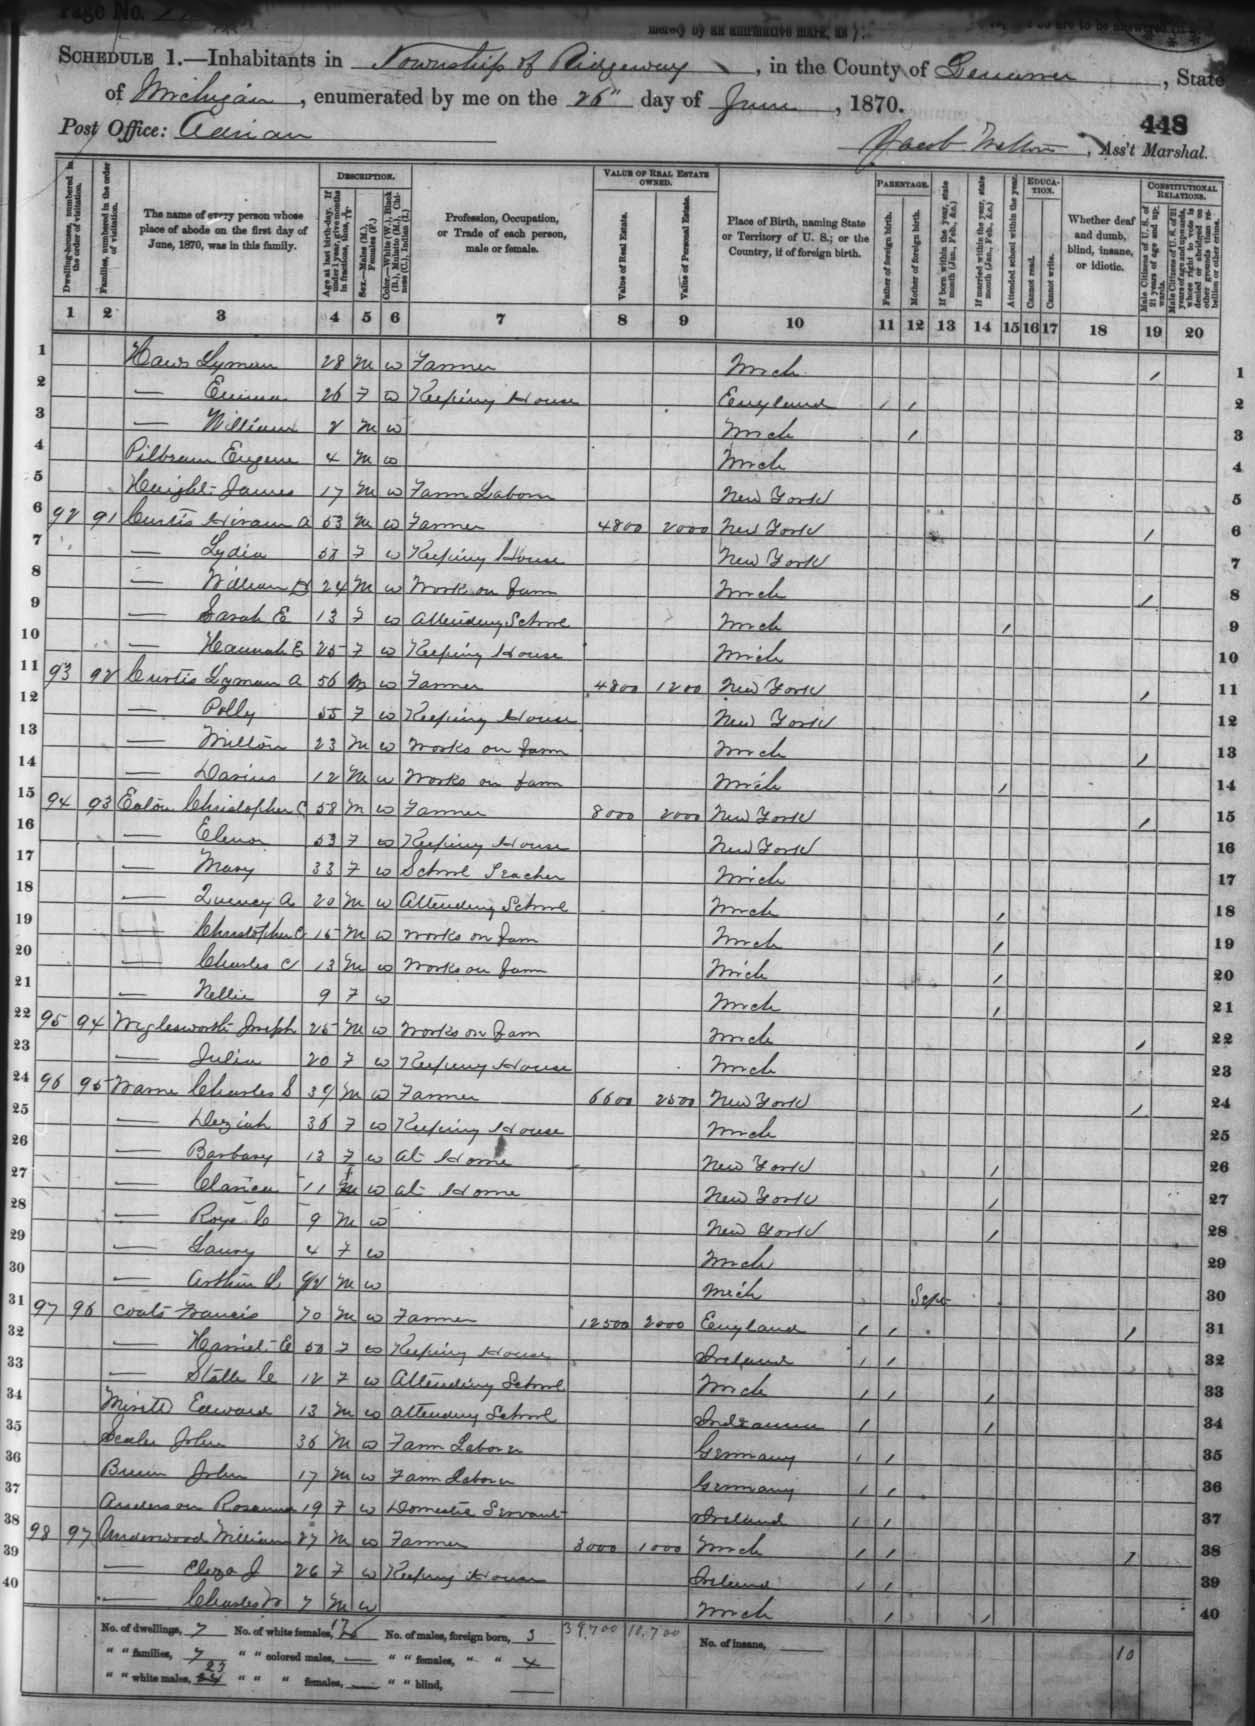 Page No.
SCHEDULE 1.—Inhabitants in Township of Ridgeway, in the County of Lenawee, State
of Michigan, enumerated by me on the 25" day of June, 1870.
Post Office: Adrian
448
Jacob Walton, Ass't Marshal.
Dwelling-houses, numbered in the order of visitation.
Families, numbered in the order of visitation.
The name of every person whose place of abode on the first day of June, 1870, was in this family.
DESCRIPTION.
Age at last birth-day. If under 1 year, give months in fractions, thus, 3/12
Sex.—Males (M.), Females (F.)
Color.—White (W.), Black (B.), Mulatto (M.), Chinese (C.), Indian (I.)
Profession, Occupation, or Trade of each person, male or female.
VALUE OF REAL ESTATE OWNED.
Value of Real Estate.
Value of Personal Estate.
Place of Birth, naming State or Territory of U. S.; or the Country, if of foreign birth.
PARENTAGE.
Father of foreign birth.
Mother of foreign birth.
If born within the year, state month (Jan., Feb., &c.)
If married within the year, state month (Jan., Feb., &c.)
Attended school within the year.
EDUCATION.
Cannot read.
Cannot write.
Whether deaf and dumb, blind, insane, or idiotic.
CONSTITUTIONAL RELATIONS.
Male Citizens of U. S. of 21 years of age and upwards.
Male Citizens of U. S. of 21 years of age and upwards, whose right to vote is denied or abridged on other grounds than rebellion or other crime.
1 2 3 4 5 6 7 8 9 10 11 12 13 14 15 16 17 18 19 20
1 Haws Lyman 28 M W Farmer Mich 1
2 — Emma 26 F W Keeping House England 2
3 — William 2 M W Mich 3
4 Pilbeam Eugene 4 M W Mich 4
5 Haight James 17 M W Farm Labor New York 5
6 92 91 Curtis Hiram A 53 M W Farmer 4800 2000 New York 6
7 — Lydia F W Keeping House New York 7
8 — William 24 M W Works on farm Mich 8
9 — Sarah E 13 F W Attending School Mich 9
10 — Hannah E 25 F W Keeping House Mich 10
11 93 92 Curtis Lyman A 56 M W Farmer 4800 1200 New York 11
12 — Polly 55 F W Keeping House New York 12
13 — Milton 23 M W Works on farm Mich 13
14 — Darius 12 M W Works on farm Mich 14
15 94 93 Eaton Christopher C 58 M W Farmer 8000 2000 New York 15
16 — Elenor 53 F W Keeping House New York 16
17 — Mary 33 F W School Teacher Mich 17
18 — Quincy A 20 M W Attending School Mich 18
19 — Christopher C 15 M W Works on farm Mich 19
20 — Charles C 13 M W Works on farm Mich 20
21 — Nellie 9 F W Mich 21
22 95 94 Wiglesworth Joseph 25 M W Works on farm Mich 22
23 — Julia 20 F W Keeping House Mich 23
24 96 95 Warne Charles S 39 M W Farmer 6600 2500 New York 24
25 — 36 F W Keeping House Mich 25
26 — Barbary 13 F W At Home New York 26
27 — Clarica 11 W At Home New York 27
28 — 9 M W New York 28
29 — Laury 4 F W Mich 29
30 — Arthur M W Mich Sept 30
31 97 96 Coats Francis 70 M W Farmer 12500 2000 England 31
32 — Harriet E F W Keeping House Ireland 32
33 — C 12 F W Attending School Mich 33
34 Edward 13 M W Attending School 34
35 John 36 M W Farm Labor Germany 35
36 John 17 M W Farm Labor Germany 36
37 Anderson Rosanna 19 F W Domestic Servant Ireland 37
38 98 97 Underwood William 27 M W Farmer 3000 1000 Mich 38
39 — Eliza J 26 F W Keeping House Ireland 39
40 — Charles 7 M W Mich 40
No. of dwellings, 7 No. of white females, No. of males, foreign born, 3 39,700 10,700 No. of insane, 10
" " families, 7 " " colored males, — " " females, " " 4
" " white males, 23 " " " females, — " " blind,